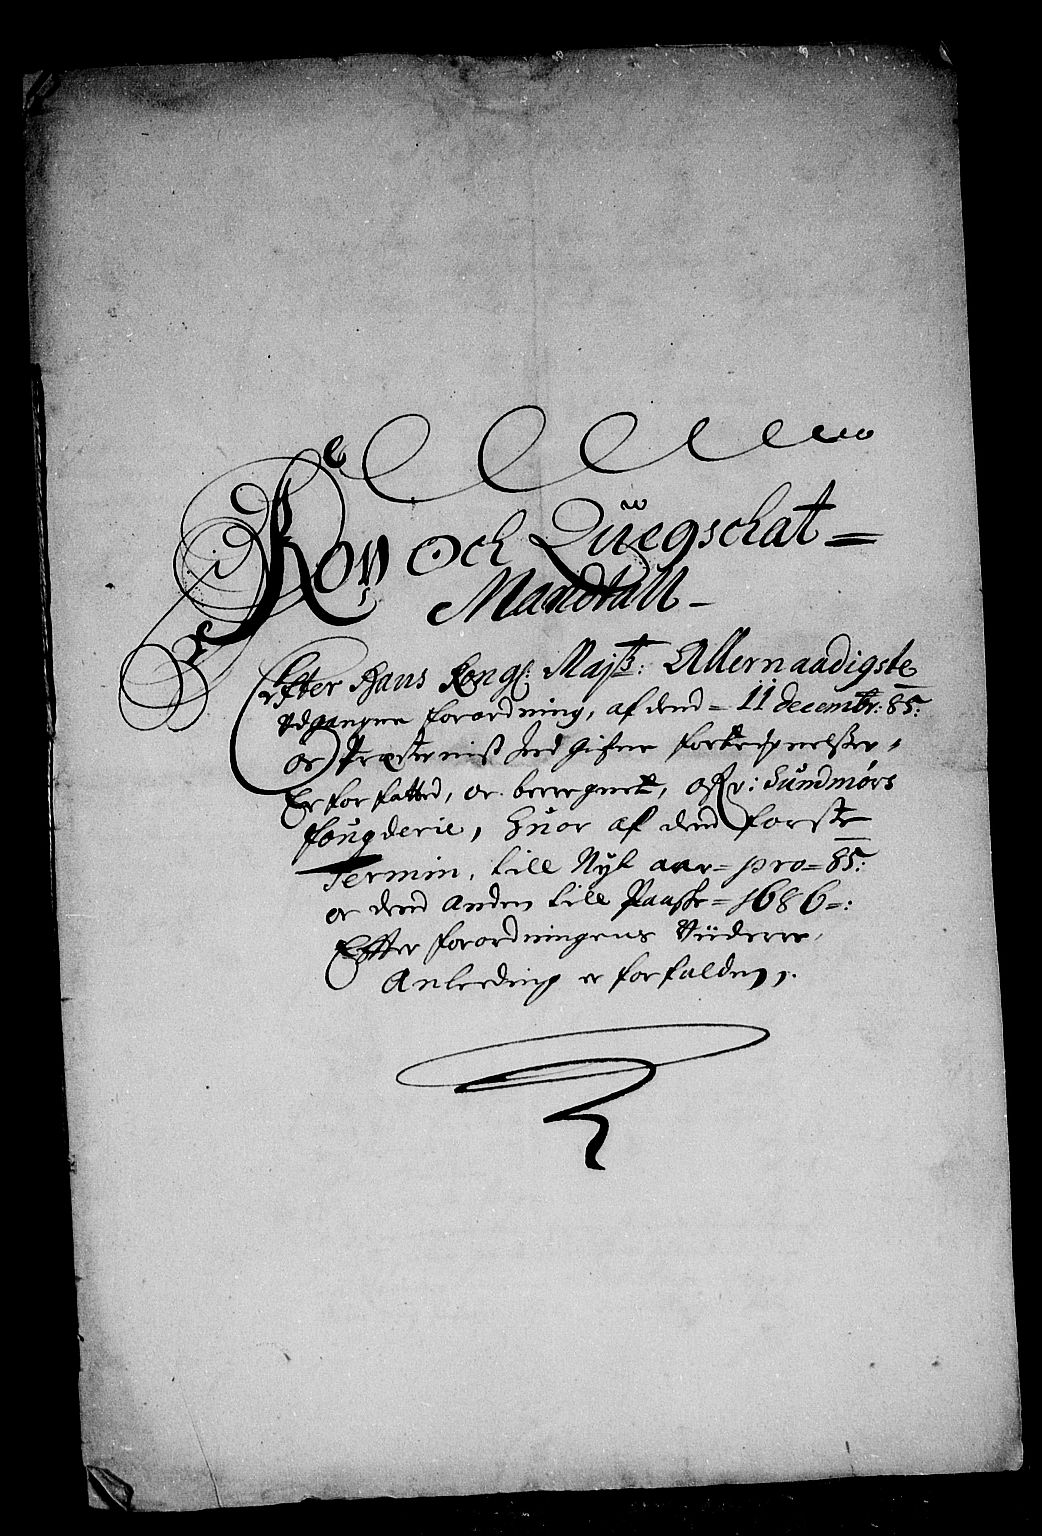 Korn och Quegschat =
Mandtall -
Efter Hans Kongl: Majts: Allernaadigste
Udgangne forordning, af dend = 11 decembr: 85:
oc Presternis Ind gifne fortegnelser,
Er forfatted, oc beregnet, offr: Sundmørs
fougderie, Huor af dend forste
Termin, till Nyt aar = pro = 85:
oc dend anden till Paaske = 1686 =:
Effter forordningens Viidere,
Anleeding er forfalden,.